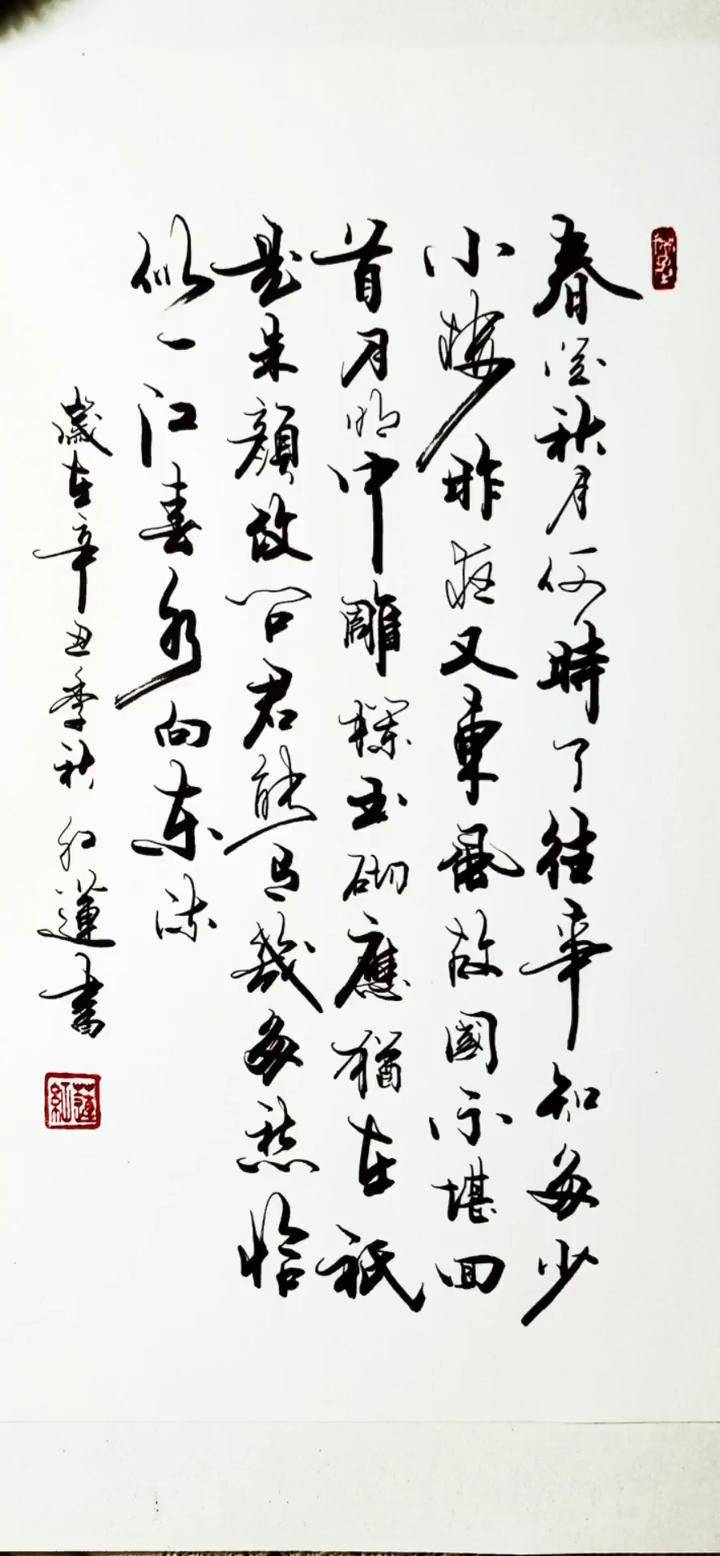 春花秋月何時了往事知多少
小樓昨夜又東風故國不堪回
首月明中雕欄玉砌應猶在祇
是朱顏改問君能有幾多愁恰
似一江春水向東流
歲在辛丑季秋紅蓮書
紅蓮